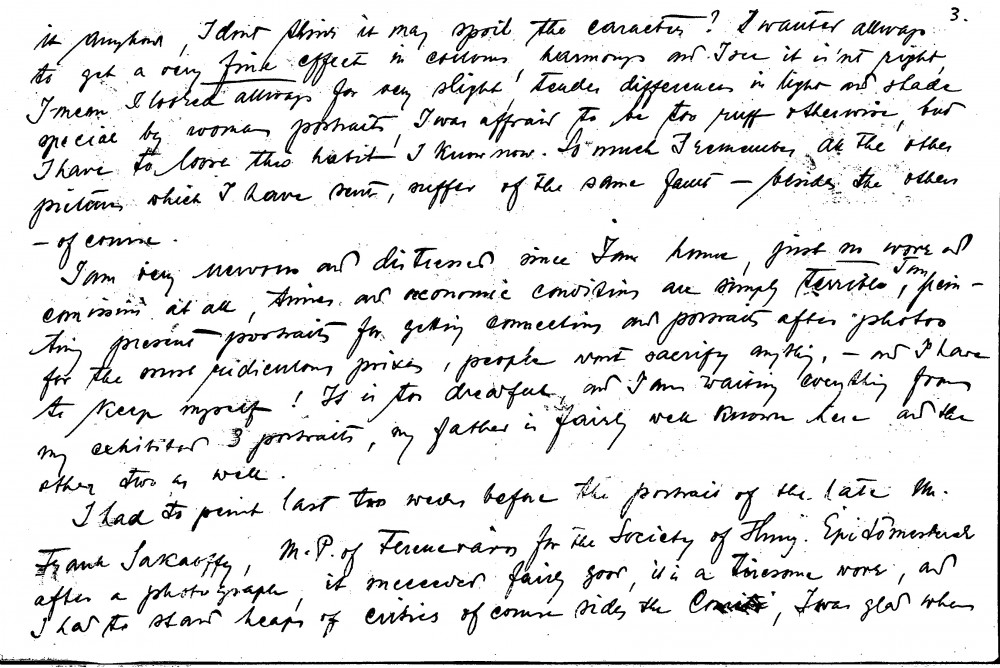 3.
it anyhow, I dont think it may spoil the caracter? I wanted allways
to get a very fine effect in colours, harmony and I see it is'nt right,
I mean I looked allways for very slight, tender differences in light and shade
special by woman portraits, I was affraid to be too ruff otherwise, but
I have to loose this habit I know now. So much I remember all the other
pictures which I have sent, suffer of the same fault — besides the others
— of course.
I am very nervous and distressed since I am home, just no work and
comission at all, times and oeconomic conditions are simply terrible, I am pein-
ting present portraits for getting connections and portraits after photos
for the most ridiculous prixes, people wont sacrify anything, — and I have
to keep myself! It is too dreadful, and I am waiting everything from
my exhibited 3 portraits, my father is fairly well known here and the
other two as well.
I had to peint last two weeks before the portrait of the late Mr.
Frank M.P. of for the Society of Hung.
after a photograph, it succeeded fairly good, it is a tiresome work, and
I had to stand heaps of critics of course sides the I was glad when